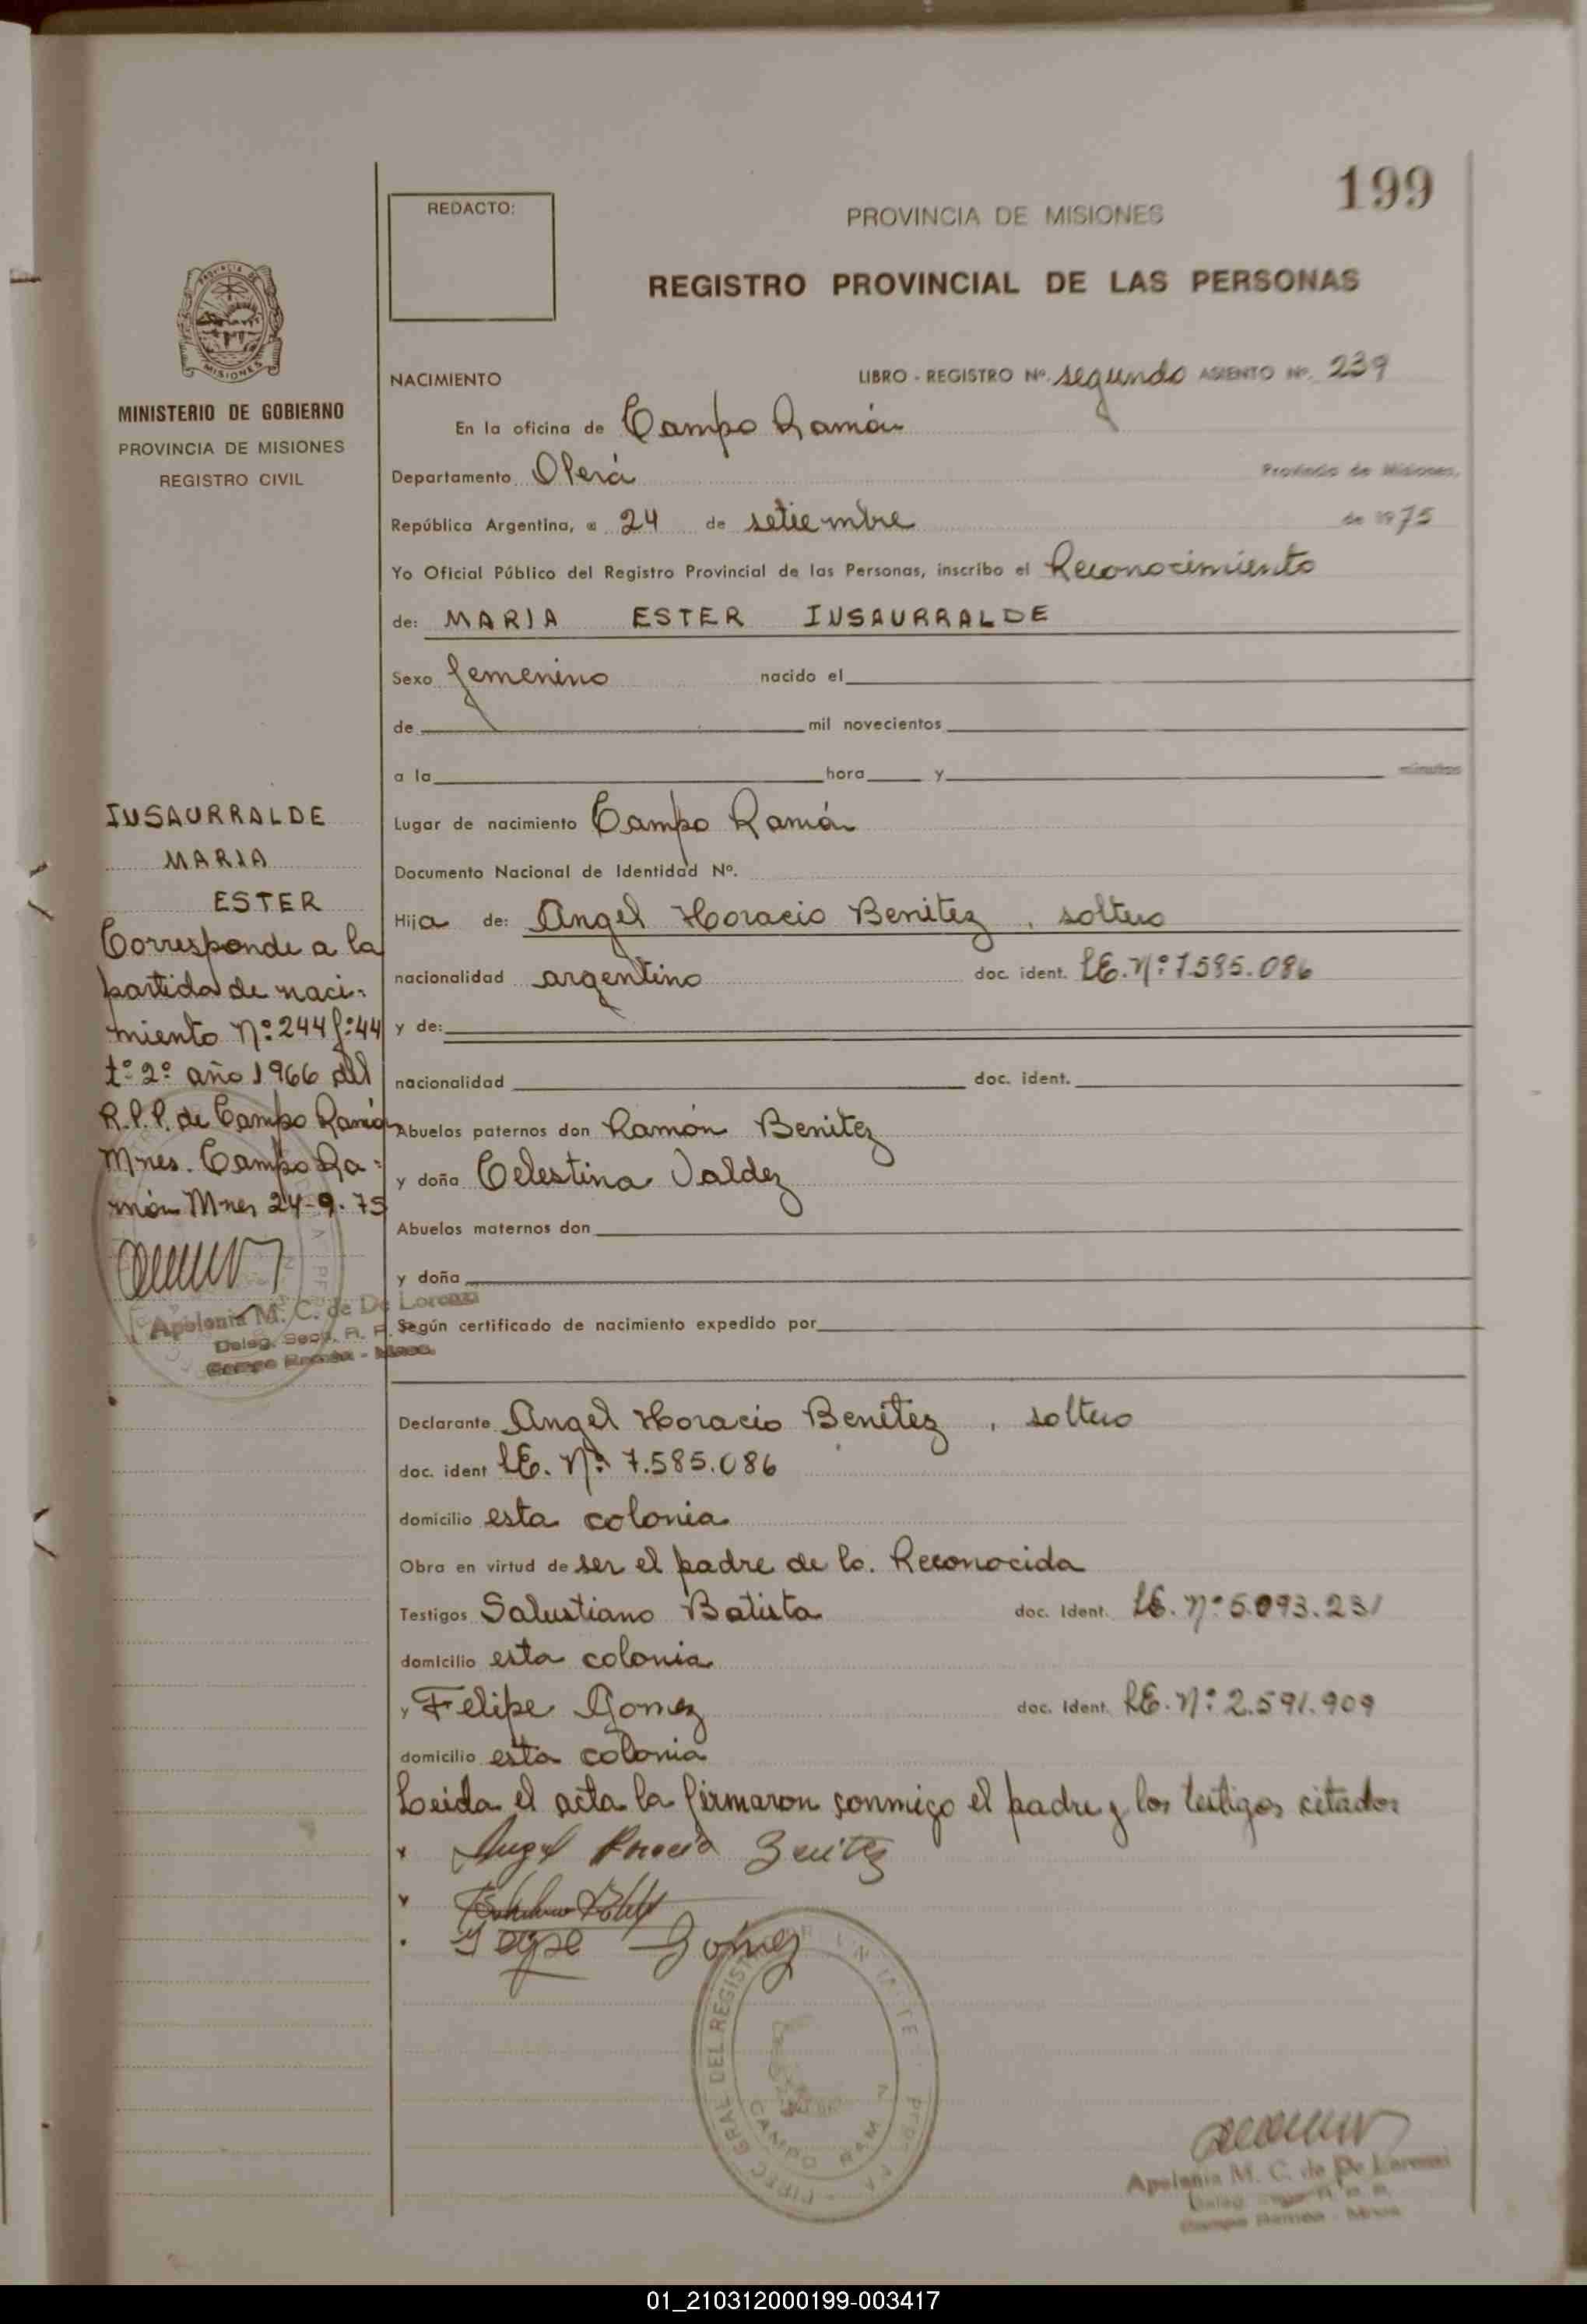 199
REDACTO:
PROVINCIA DE MISIONES
REGISTRO PROVINCIAL DE LAS PERSONAS
MISIONES
MINISTERIO DE GOBIERNO
PROVINCIA DE MISIONES
REGISTRO CIVIL
NACIMIENTO LIBRO - REGISTRO Nº. segundo ASIENTO Nº. 239
En la oficina de Campo Ramón
Departamento Oberá Provincia de Misiones,
República Argentina, a 24 de setiembre de 1975
Yo Oficial Público del Registro Provincial de las Personas, inscribo el Reconocimiento
de: MARIA ESTER INSAURRALDE
Sexo femenino nacido el
de mil novecientos
a la hora y minutos
Lugar de nacimiento Campo Ramón
Documento Nacional de Identidad Nº.
Hija de: Angel Horacio Benitez, soltero
nacionalidad argentino doc. ident. LE. Nº: 7.585.086
y de:
nacionalidad doc. ident.
Abuelos paternos don Ramón Benitez
y doña Celestina Valdez
Abuelos maternos don
y doña
Según certificado de nacimiento expedido por
INSAURRALDE
MARIA
ESTER
Corresponde a la
partida de naci-
miento Nº: 244 f: 44
tº 2º año 1966 del
R.P.P. de Campo Ramón
Mnes. Campo Ra-
món Mnes 24-9-75
Apolonia M. C. de De Lorenzi
Deleg. Secc. R. P.
Campo Ramón - Mnes.
Declarante Angel Horacio Benitez, soltero
doc. ident LE. Nº: 7.585.086
domicilio esta colonia
Obra en virtud de ser el padre de la Reconocida
Testigos Salustiano Batista doc. Ident. LE. Nº 5.093.231
domicilio esta colonia
y Felipe Gomez doc. Ident. LE. Nº: 2.591.909
domicilio esta colonia
Leida el acta la firmaron conmigo el padre y los testigos citados
Angel Horacio Benitez
Felipe Gómez
CAMPO RAMON
Apolonia M. C. de De Lorenzi
Campo Ramón - Mnes
01_210312000199-003417